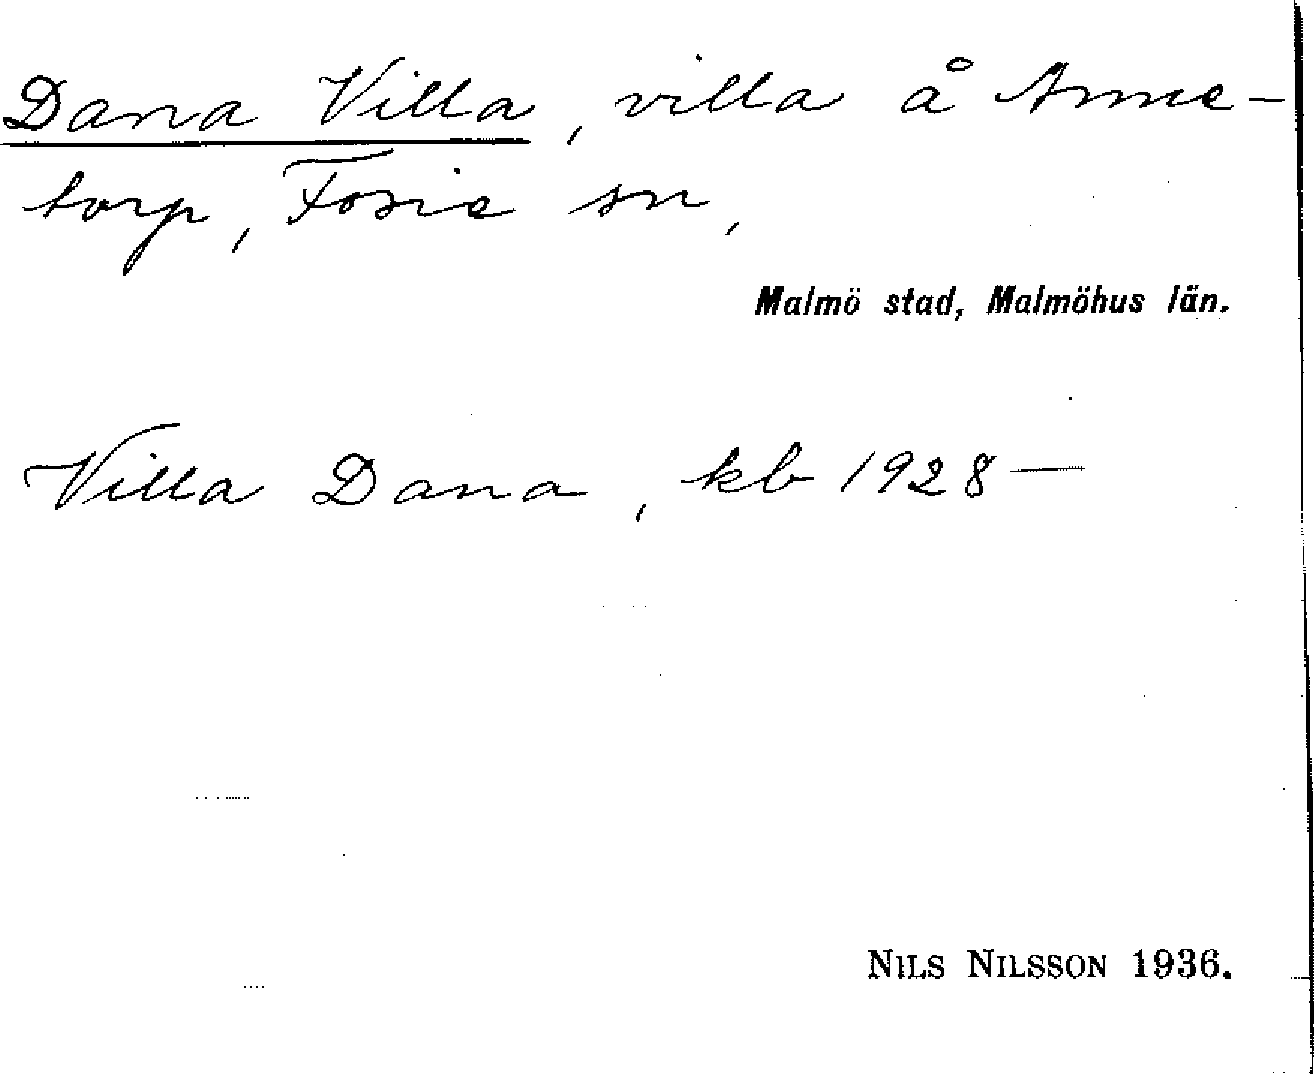 Dana Villa, villa å Anne-
torp, Fosie sn,
Malmö stad, Malmöhus län.
Villa Dana, kb 1928—
NILS NILSSON 1936.